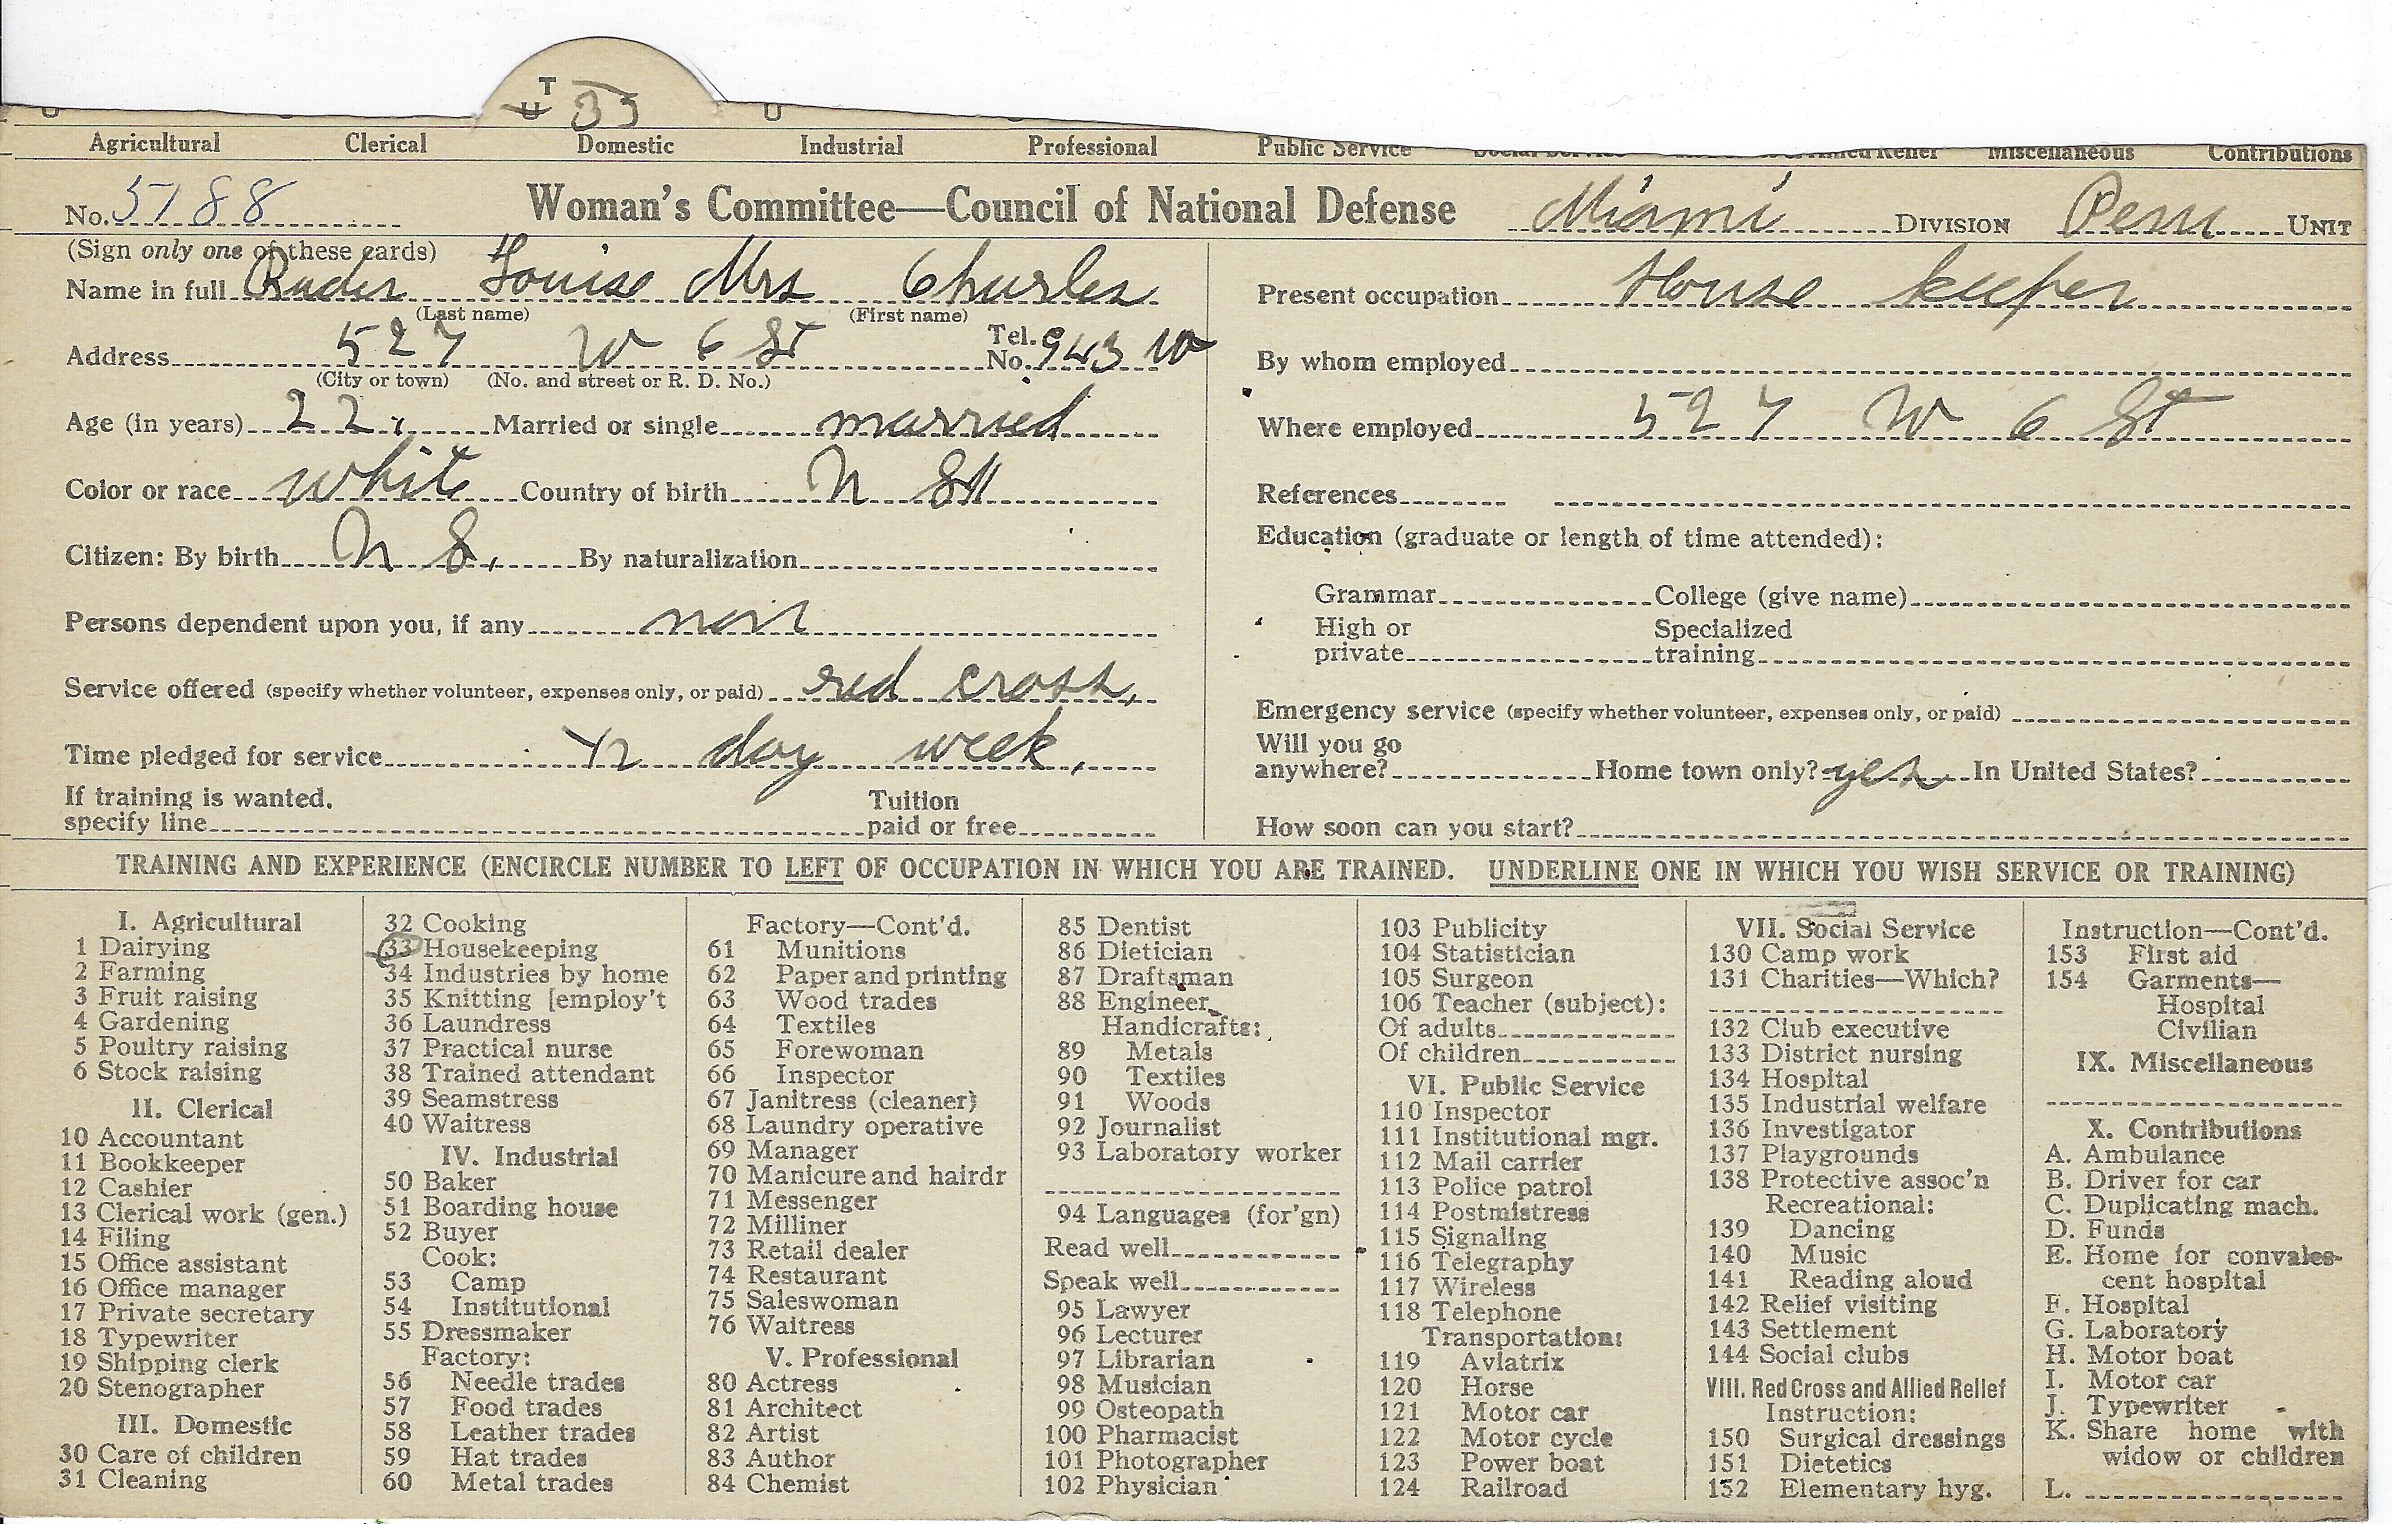 T
U 33
Agricultural Clerical Domestic Industrial Professional Public Service Miscellaneous Contributions
No. 5188 Woman's Committee—Council of National Defense Miami DIVISION Peru UNIT
(Sign only one of these cards)
Name in full Rader Louise Mrs Charles
(Last name) (First name)
Address 527 W 6 St Tel. No. 943 W
(City or town) (No. and street or R. D. No.)
Age (in years) 22. Married or single married
Color or race white Country of birth
Citizen: By birth By naturalization
Persons dependent upon you, if any non
Service offered (specify whether volunteer, expenses only, or paid) red cross,
Time pledged for service 1/2 day week,
If training is wanted, Tuition
specify line paid or free
Present occupation House keeper
By whom employed
Where employed 527 W 6 St
References
Education (graduate or length of time attended):
Grammar College (give name)
High or Specialized
private training
Emergency service (specify whether volunteer, expenses only, or paid)
Will you go
anywhere? Home town only? yes In United States?
How soon can you start?
TRAINING AND EXPERIENCE (ENCIRCLE NUMBER TO LEFT OF OCCUPATION IN WHICH YOU ARE TRAINED. UNDERLINE ONE IN WHICH YOU WISH SERVICE OR TRAINING)
I. Agricultural
1 Dairying
2 Farming
3 Fruit raising
4 Gardening
5 Poultry raising
6 Stock raising
II. Clerical
10 Accountant
11 Bookkeeper
12 Cashier
13 Clerical work (gen.)
14 Filing
15 Office assistant
16 Office manager
17 Private secretary
18 Typewriter
19 Shipping clerk
20 Stenographer
III. Domestic
30 Care of children
31 Cleaning
32 Cooking
33 Housekeeping
34 Industries by home
35 Knitting [employ't
36 Laundress
37 Practical nurse
38 Trained attendant
39 Seamstress
40 Waitress
IV. Industrial
50 Baker
51 Boarding house
52 Buyer
Cook:
53 Camp
54 Institutional
55 Dressmaker
Factory:
56 Needle trades
57 Food trades
58 Leather trades
59 Hat trades
60 Metal trades
Factory—Cont'd.
61 Munitions
62 Paper and printing
63 Wood trades
64 Textiles
65 Forewoman
66 Inspector
67 Janitress (cleaner)
68 Laundry operative
69 Manager
70 Manicure and hairdr
71 Messenger
72 Milliner
73 Retail dealer
74 Restaurant
75 Saleswoman
76 Waitress
V. Professional
80 Actress
81 Architect
82 Artist
83 Author
84 Chemist
85 Dentist
86 Dietician
87 Draftsman
88 Engineer
Handicrafts:
89 Metals
90 Textiles
91 Woods
92 Journalist
93 Laboratory worker
94 Languages (for'gn)
Read well
Speak well
95 Lawyer
96 Lecturer
97 Librarian
98 Musician
99 Osteopath
100 Pharmacist
101 Photographer
102 Physician
103 Publicity
104 Statistician
105 Surgeon
106 Teacher (subject):
Of adults
Of children
VI. Public Service
110 Inspector
111 Institutional mgr.
112 Mail carrier
113 Police patrol
114 Postmistress
115 Signaling
116 Telegraphy
117 Wireless
118 Telephone
Transportation:
119 Aviatrix
120 Horse
121 Motor car
122 Motor cycle
123 Power boat
124 Railroad
VII. Social Service
130 Camp work
131 Charities—Which?
132 Club executive
133 District nursing
134 Hospital
135 Industrial welfare
136 Investigator
137 Playgrounds
138 Protective assoc'n
Recreational:
139 Dancing
140 Music
141 Reading aloud
142 Relief visiting
143 Settlement
144 Social clubs
VIII. Red Cross and Allied Relief
Instruction:
150 Surgical dressings
151 Dietetics
152 Elementary hyg.
Instruction—Cont'd.
153 First aid
154 Garments—
Hospital
Civilian
IX. Miscellaneous
X. Contributions
A. Ambulance
B. Driver for car
C. Duplicating mach.
D. Funds
E. Home for convales-
cent hospital
F. Hospital
G. Laboratory
H. Motor boat
I. Motor car
J. Typewriter
K. Share home with
widow or children
L.